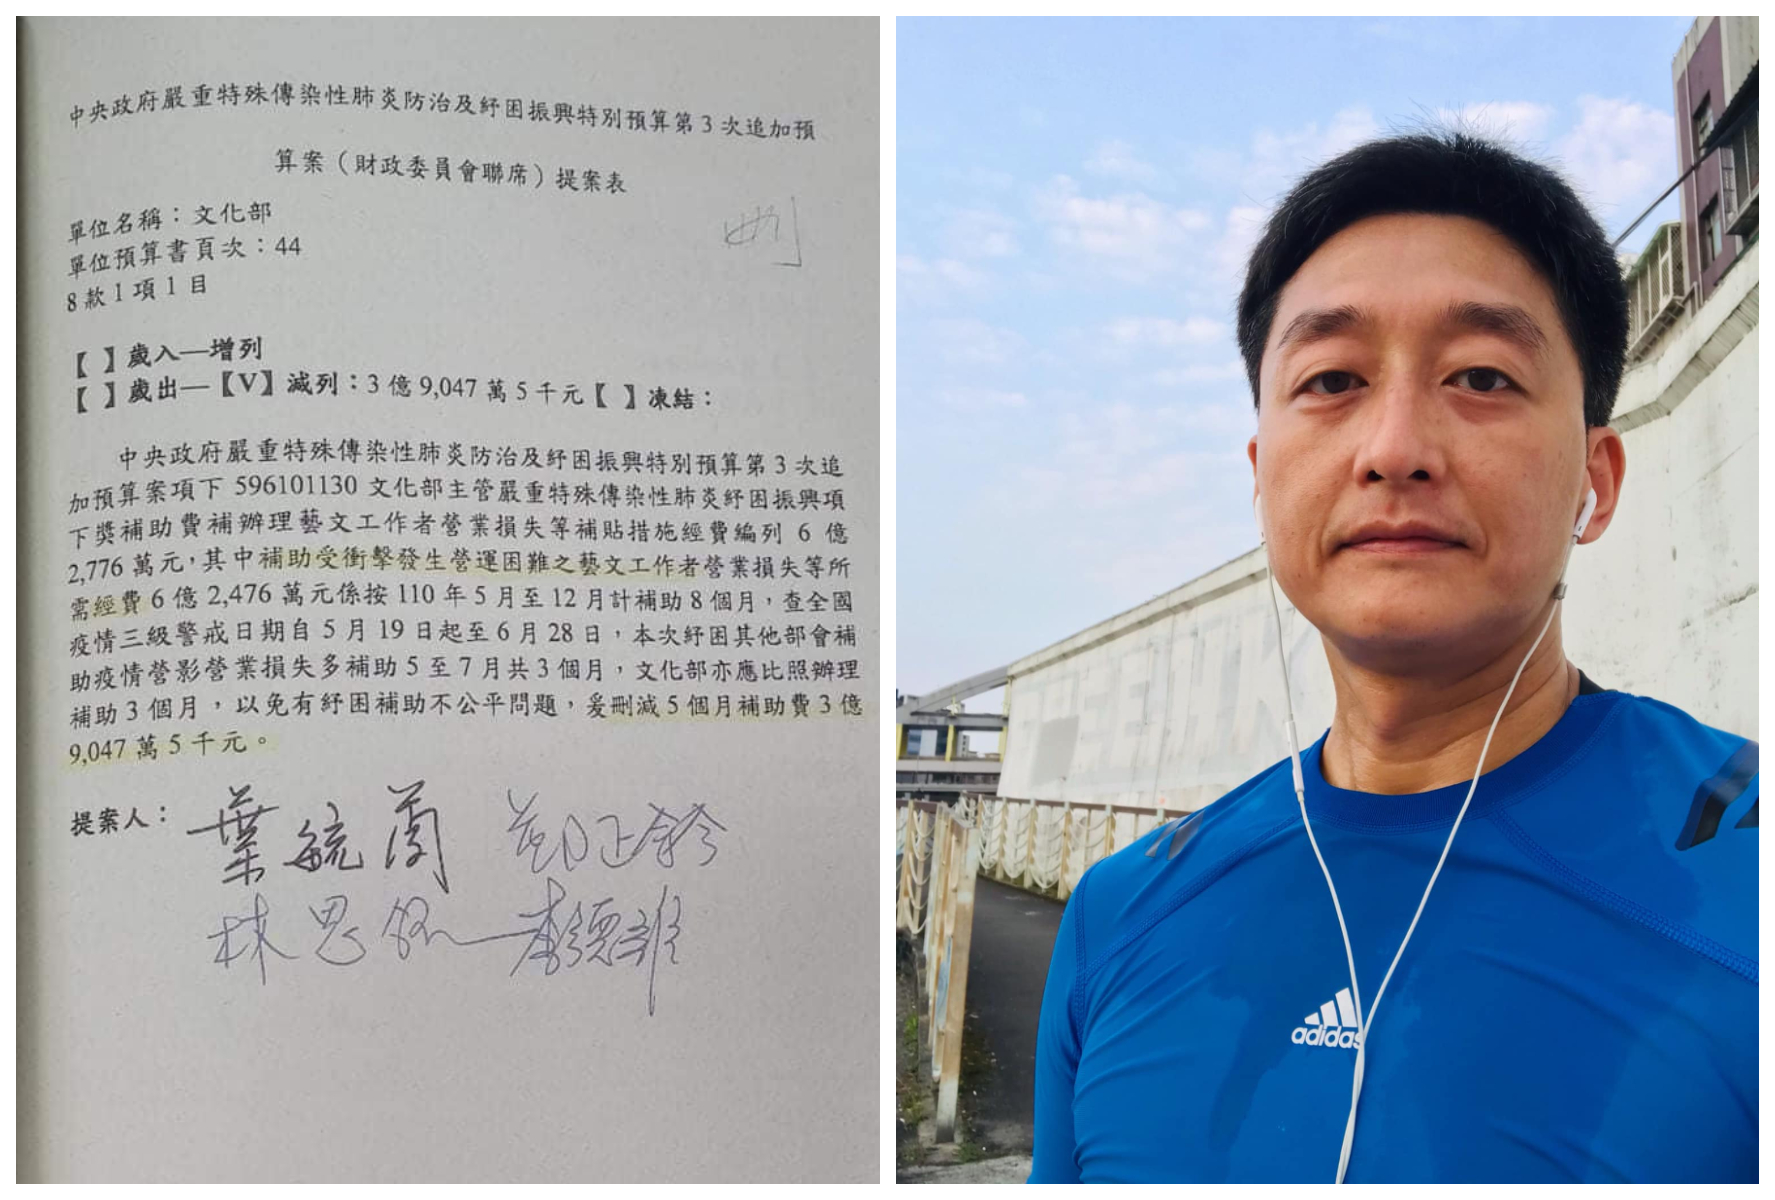 中央政府嚴重特殊傳染性肺炎防治及紓困振興特別預算第3次追加預
算案（財政委員會聯席）提案表
刪
單位名稱：文化部
單位預算書頁次：44
8款1項1目
【 】歲入—增列
【 】歲出—【V】減列：3億9,047萬5千元【 】凍結：
中央政府嚴重特殊傳染性肺炎防治及紓困振興特別預算第3次追
加預算案項下 596101130 文化部主管嚴重特殊傳染性肺炎紓困振興項
下獎補助費補辦理藝文工作者營業損失等補貼措施經費編列 6 億
2,776 萬元，其中補助受衝擊發生營運困難之藝文工作者營業損失等所
需經費 6 億 2,476 萬元係按 110 年 5 月至 12 月計補助 8 個月，查全國
疫情三級警戒日期自 5 月 19 日起至 6 月 28 日，本次紓困其他部會補
助疫情營影營業損失多補助 5 至 7 月共 3 個月，文化部亦應比照辦理
補助 3 個月，以免有紓困補助不公平問題，爰刪減 5 個月補助費 3 億
9,047 萬 5 千元。
提案人：葉毓蘭 鄭正鈐
林思銘 李德維
adidas